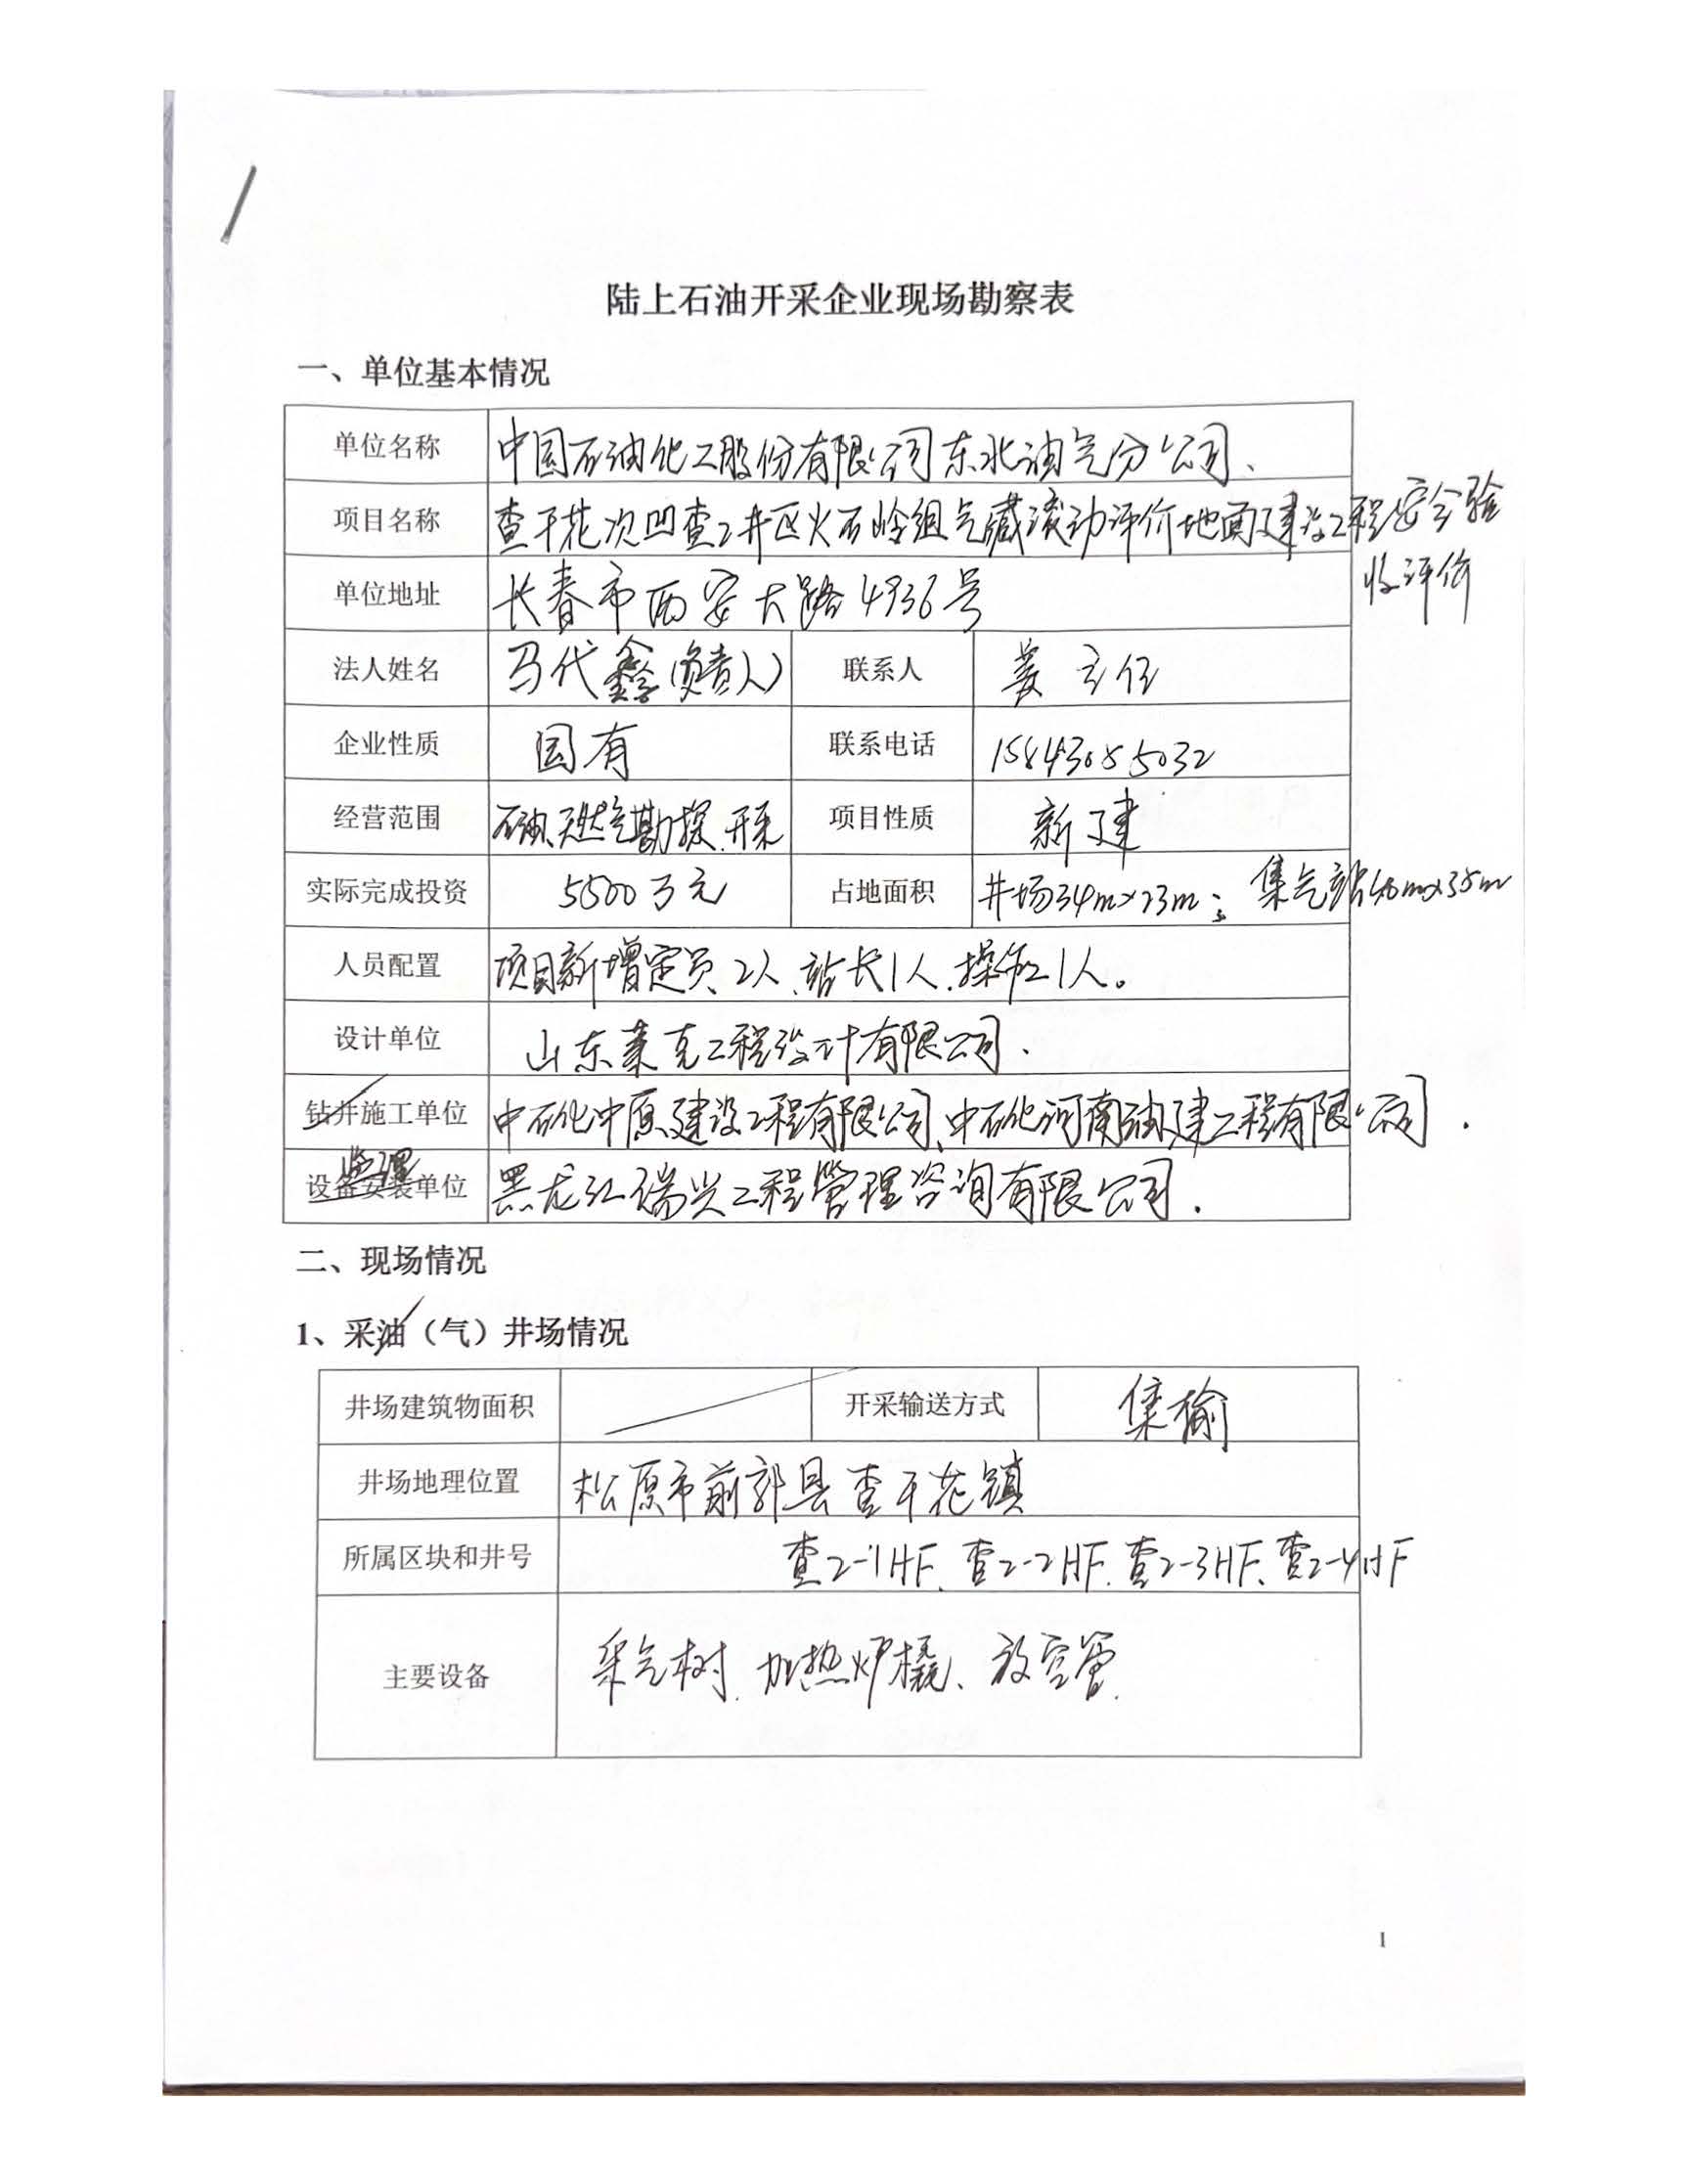 陆上石油开采企业现场勘察表
一、单位基本情况
单位名称 中国石油化工股份有限公司东北油气分公司、
项目名称 查干花次凹查2井区火石岭组气藏滚动评价地面建设工程安全验
收评价
单位地址 长春市西安大路4936号
法人姓名 马代鑫(负责人) 联系人 姜主任
企业性质 国有 联系电话 15843085032
经营范围 石油、天然气勘探、开采 项目性质 新建
实际完成投资 5500万元 占地面积 井场34m×23m; 集气站40m×35m
人员配置 项目新增定员2人、站长1人、操作工1人。
设计单位 山东莱克工程设计有限公司.
钻井施工单位 中石化中原建设工程有限公司、中石化河南油建工程有限公司.
监理
设备安装单位 黑龙江瑞兴工程管理咨询有限公司.
二、现场情况
1、采油（气）井场情况
井场建筑物面积 开采输送方式 集输
井场地理位置 松原市前郭县查干花镇
所属区块和井号 查2-1HF、查2-2HF、查2-3HF、查2-4HF
主要设备 采气树、加热炉橇、放空管.
1